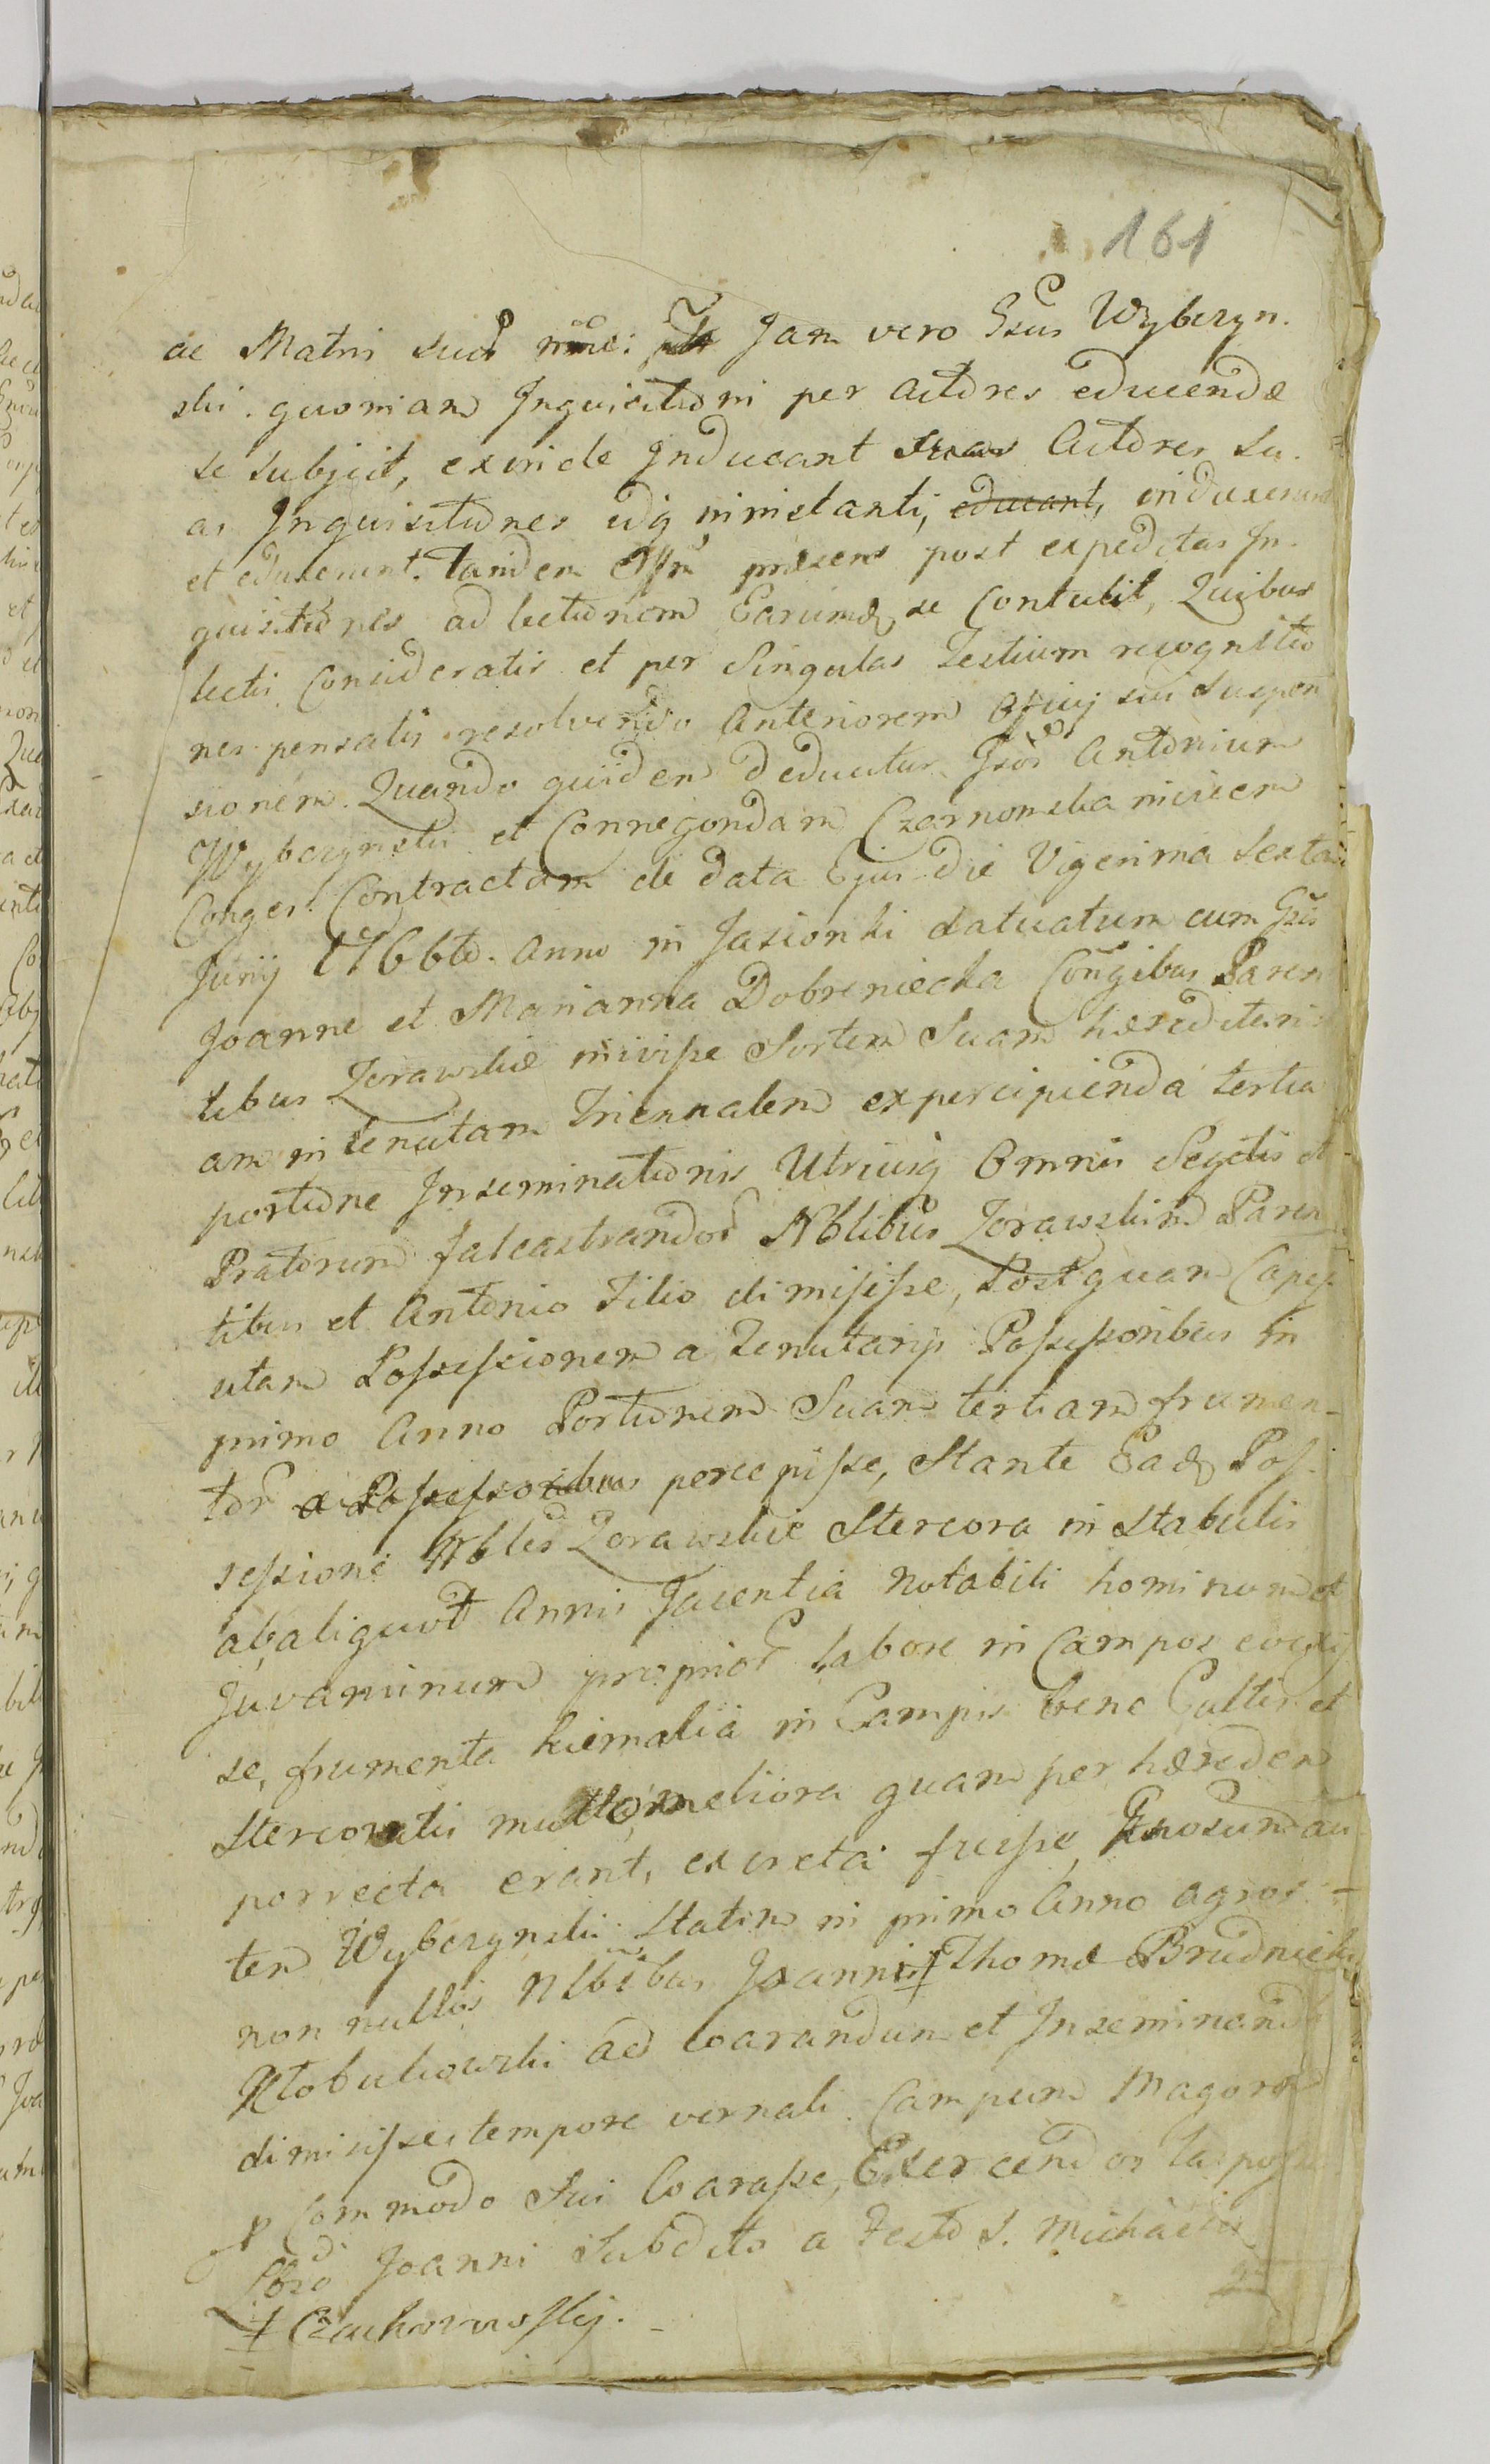 161
ac Matri suæ Jam vero Gsus Wybczyn.
ski. quoniam Inquisitioni per Actores educendæ
se subjecit, exinde Inducant Actores su.
as Inquisitiones idq ministanti, educant, induxerunt
et eduxerunt. Tandem Offm præsens post expeditas In-
quisitiones ad lectionem Earumdq se Contulit, Quibus
lectis Consideratis et per Singulas Testium recognitio
nes pensatis resolvendo Anteriorem Officij sui Suspen
sionem. Quando quidem deducitur Gsos Antonium
Wybczynski et Connegondam Czarnomska invicem
Conges. Contractum de data Ejus die Vigesima Sexta
Junij 1766to. Anno in Jasionki statuatum cum Gsis
Joanne et Marianna Dobreniecka Congibus Paren
tibus Zorawskie inivisse Sortem Suam hæreditari
am in tenutam Triennalem ex percipienda tertia
portione Inseminationis Utriusq Omnis Segetis et
Pratorum falcastrandor Nblibus Zorawskim Paren
tibus et Antonio Filio dimisisse, Postquam Capess
utam Possessionem a Tenutarijs Possessoribus in
primo Anno Portionem Suam tertiam frumen-
tor a Possessoribus percepisse, Stante Eadq Pos-
sessione Nbles Zorawskie Stercora in Stabulis
ab aliquot Annis Jacentia notabili hominum et
Juvaminum proprior labore in Campos evexis
se, frumenta hiemalia in Campis bene Cultis et
Stercoratis multo meliora quam per hæredem
porrecta erant, excreta fuisse, Gsnosum au
tem Wybczynski Statim in primo Anno agros
non nullos Nlbibus Joanni ‡ Thomæ Brudnicki
Kłobukowski ad Coarandum et Inseminand
dimisisse, tempore vernali Campum Magorow
p Commodo Sui Coarasse, Exercendor
Lbso Joanni Subdito a Festo S. Michaelis
‡ Czachorowskij.